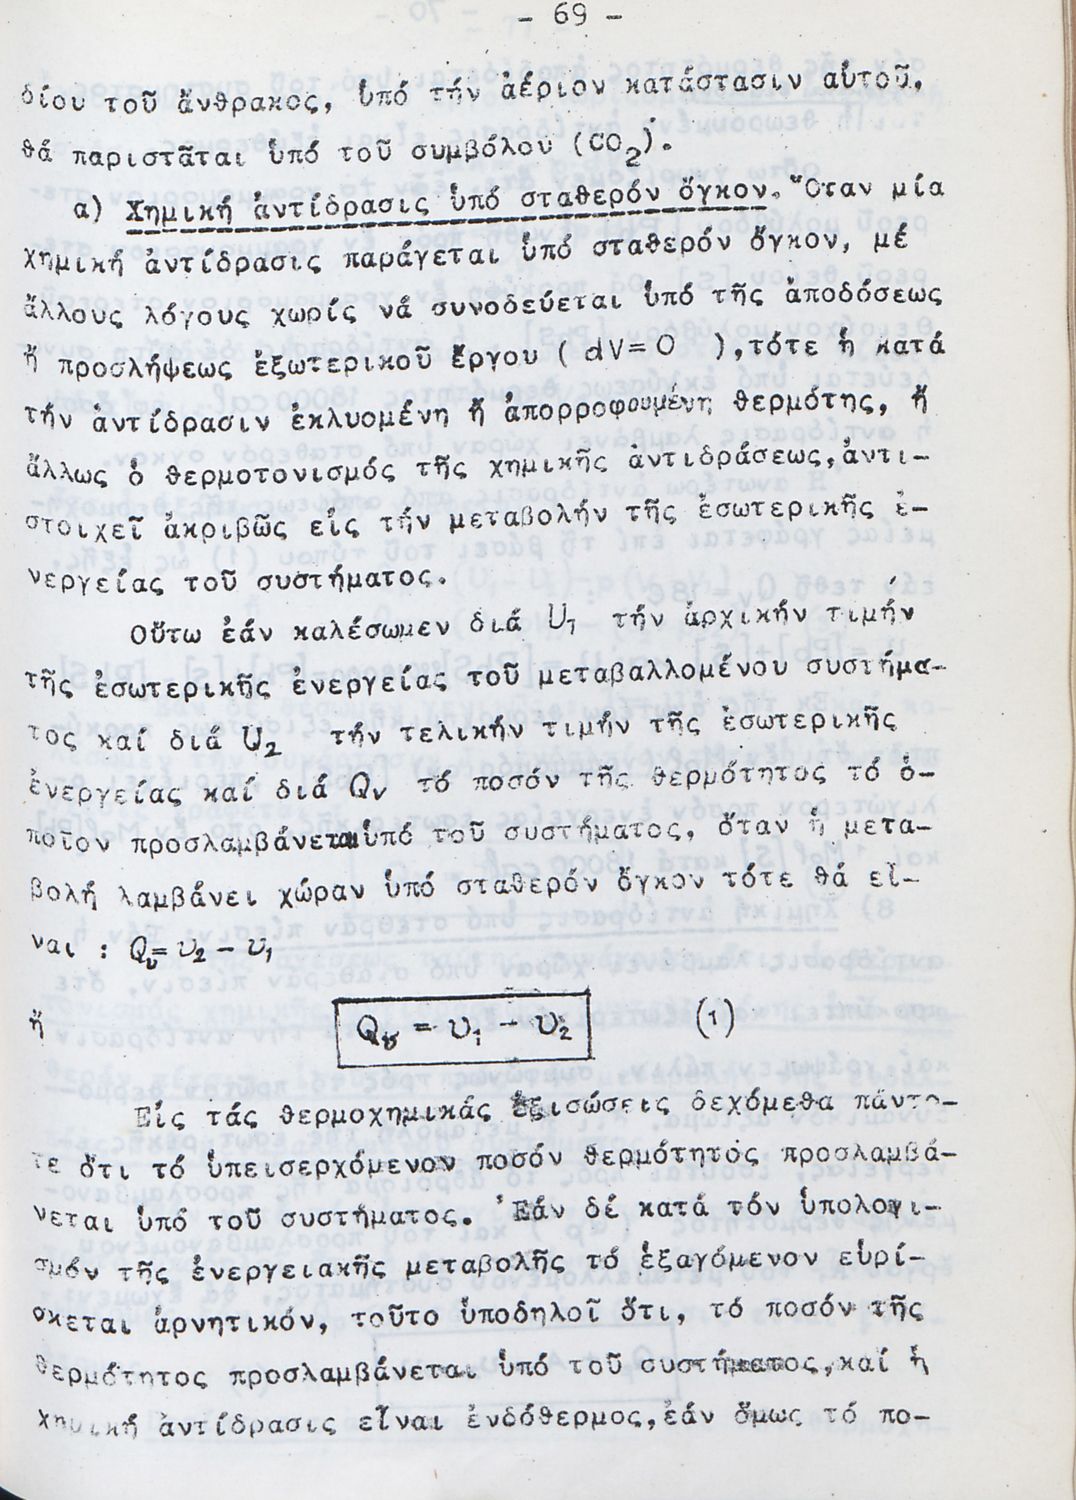 - 69 -
δίου τοῦ ἄνθρακος, ὑπό τήν ἀέριον κατάστασιν αὐτοῦ,
θά παριστᾶται ὑπό τοῦ συμβόλου (CO₂).
α) Χημική ἀντίδρασις ὑπό σταθερόν ὄγκον. Ὅταν μία
χημική ἀντίδρασις παράγεται ὑπό σταθερόν ὄγκον, μέ
ἄλλους λόγους χωρίς νά συνοδεύεται ὑπό τῆς ἀποδόσεως
ἤ προσλήψεως ἐξωτερικοῦ ἔργου ( dV=0 ), τότε ἡ κατά
τήν ἀντίδρασιν ἐκλυομένη ἤ ἀπορροφουμένη θερμότης, ἤ
ἄλλως ὁ θερμοτονισμός τῆς χημικῆς ἀντιδράσεως, ἀντι-
στοιχεῖ ἀκριβῶς εἰς τήν μεταβολήν τῆς ἐσωτερικῆς ἐ-
νεργείας τοῦ συστήματος.
Οὕτω ἐάν καλέσωμεν διά U₁ τήν ἀρχικήν τιμήν
τῆς ἐσωτερικῆς ἐνεργείας τοῦ μεταβαλλομένου συστήμα-
τος καί διά U₂ τήν τελικήν τιμήν τῆς ἐσωτερικῆς
ἐνεργείας καί διά Qv τό ποσόν τῆς θερμότητος τό ὁ-
ποῖον προσλαμβάνεται ὑπό τοῦ συστήματος, ὅταν ἡ μετα-
βολή λαμβάνει χώραν ὑπό σταθερόν ὄγκον τότε θά εἶ-
ναι : Qv= υ₂ - υ₁
ἤ Qv = υ₁ - υ₂ (1)
Εἰς τάς θερμοχημικάς ἐξισώσεις δεχόμεθα πάντο-
τε ὅτι τό ὑπεισερχόμενον ποσόν θερμότητος προσλαμβά-
νεται ὑπό τοῦ συστήματος. Ἐάν δέ κατά τόν ὑπολογι-
σμόν τῆς ἐνεργειακῆς μεταβολῆς τό ἐξαγόμενον εὑρί-
σκεται ἀρνητικόν, τοῦτο ὑποδηλοῖ ὅτι, τό ποσόν τῆς
θερμότητος προσλαμβάνεται ὑπό τοῦ συστήματος, καί ἡ
χημική ἀντίδρασις εἶναι ἐνδόθερμος, ἐάν ὅμως τό πο-